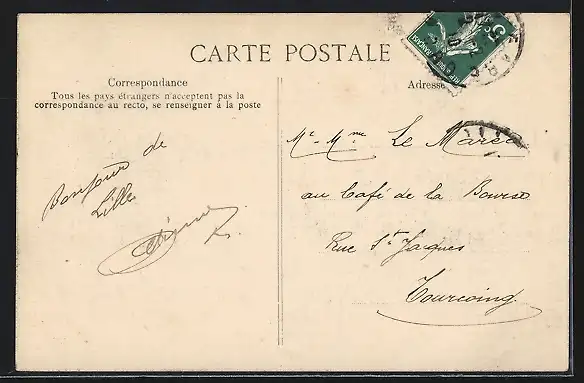 CARTE POSTALE
Correspondance
Tous les pays étrangers n'acceptent pas la
correspondance au recto, se renseigner à la poste
Bonjour de
Lille
Adresse
Mr. Mme Le Marec
au Café de la Bourse
Rue St Jacques
Tourcoing
5